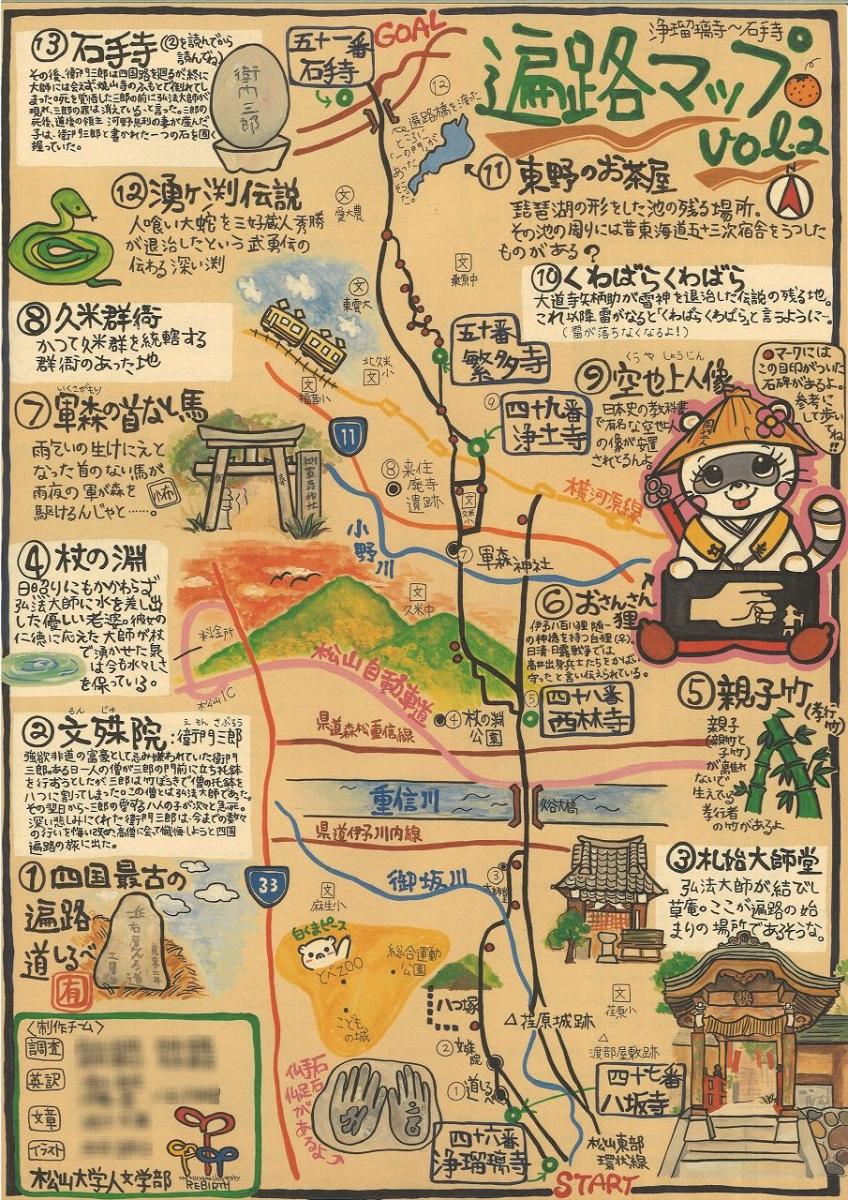 浄瑠璃寺〜石手寺
遍路マップ
vol.2
N
GOAL
五十一番
石手寺
⑬石手寺
②を読んでから
読んでね
その後、衛門三郎は四国路を廻るが終に
大師には会えず、焼山寺のふもとで倒れてし
まった。死を覚悟した三郎の前に弘法大師が
現れ、三郎の罪は消えている、と言った。三郎の
死後、道後の領主 河野息利の妻が産んだ
子は、衛門三郎と書かれた一つの石を固く
握っていた。
衛門三郎
⑫湧ヶ渕伝説
人喰い大蛇を三好蔵人秀勝
が退治したという武勇伝の
伝わる深い渕
⑫
遍路橋を渡った
ところに
「一の門」が
あったそうだ。
⑪東野のお茶屋
琵琶湖の形をした池の残る場所。
その池の周りには昔東海道五十三次宿舎をうつした
ものがある?
文
愛大農
文
桑原中
文
東雲大
⑩くわばらくわばら
大道寺矢柄助が雷神を退治した伝説の残る地。
これ以降、雷がなると「くわばらくわばら」と言うように…。
(雷が落ちなくなるよ!)
⑧久米群衙
かつて久米群を統轄する
群衙のあった地
北久米
文小
文
福音小
五十番
繁多寺
⑨
四十九番
浄土寺
くうやしょうにん
⑨空也上人像
日本史の教科書
で有名な空也上人
の像が安置
されとるんよ。
●マークには
この目印がついた
石碑があるよ。
参考に
して歩いてね!!
同行二人
いくさがもり
⑦軍森の首なし馬
雨乞いの生けにえと
なった首のない馬が
雨夜の軍が森を
駆けるんじゃと……。
怖
11
⑧来住
廃寺
遺跡
文
久米小
横河原線
小野川
⑦軍森神社
④杖の淵
日照りにもかかわらず
弘法大師に水を差し出
した優しい老婆。彼女の
仁徳に応えた大師が杖
で湧かせた泉
は今も水々しさ
を保っている。
料金所
松山IC
松山自動車道
文
久米中
⑥おさんさん
狸
伊予八百八狸随一
の神格を持つ白狸(♀)。
日清・日露戦争では
高井出身兵士たちをかばい
守ったと言い伝えられている。
⑤
四十八番
西林寺
④杖の淵
公園
県道森松重信線
⑤親子竹
(孝行竹)
親子
(親竹と
子竹)
が離れ
ないで
生えている
孝行者
の竹があるよ
もんじゅ
②文殊院:衛門三郎
えもんさぶろう
強欲非道の富豪として忌み嫌われていた衛門
三郎。ある日一人の僧が三郎の門前に立ち托鉢
を行おうとしたが三郎は竹ぼうきで僧の托鉢を
八つに割ってしまった。この僧とは弘法大師であった。
その翌日から、三郎の愛する八人の子が次々と急死。
深い悲しみにくれた衛門三郎は、今までの数々
の行いを悔い改め、高僧に会って懺悔しようと四国
遍路の旅に出た。
重信川
久谷大橋
県道伊予川内線
33
御坂川
③
大師堂
③札始大師堂
弘法大師が結びし
草庵。ここが遍路の始
まりの場所であるそうな。
①四国最古の
遍路
道しるべ
有
文
麻生小
白くまピース
とべZOO
総合運動
公園
こどもの城
八つ塚
△荏原城跡
文
荏原小
△
渡部屋敷跡
②文殊院
①道しるべ
四十七番
八坂寺
仏手石
仏足石
があるよ
四十六番
浄瑠璃寺
松山東部
環状線
START
〈制作チーム〉
調査
英訳
文章
イラスト
松山大学人文学部
Matsuyama University
REBIRTH